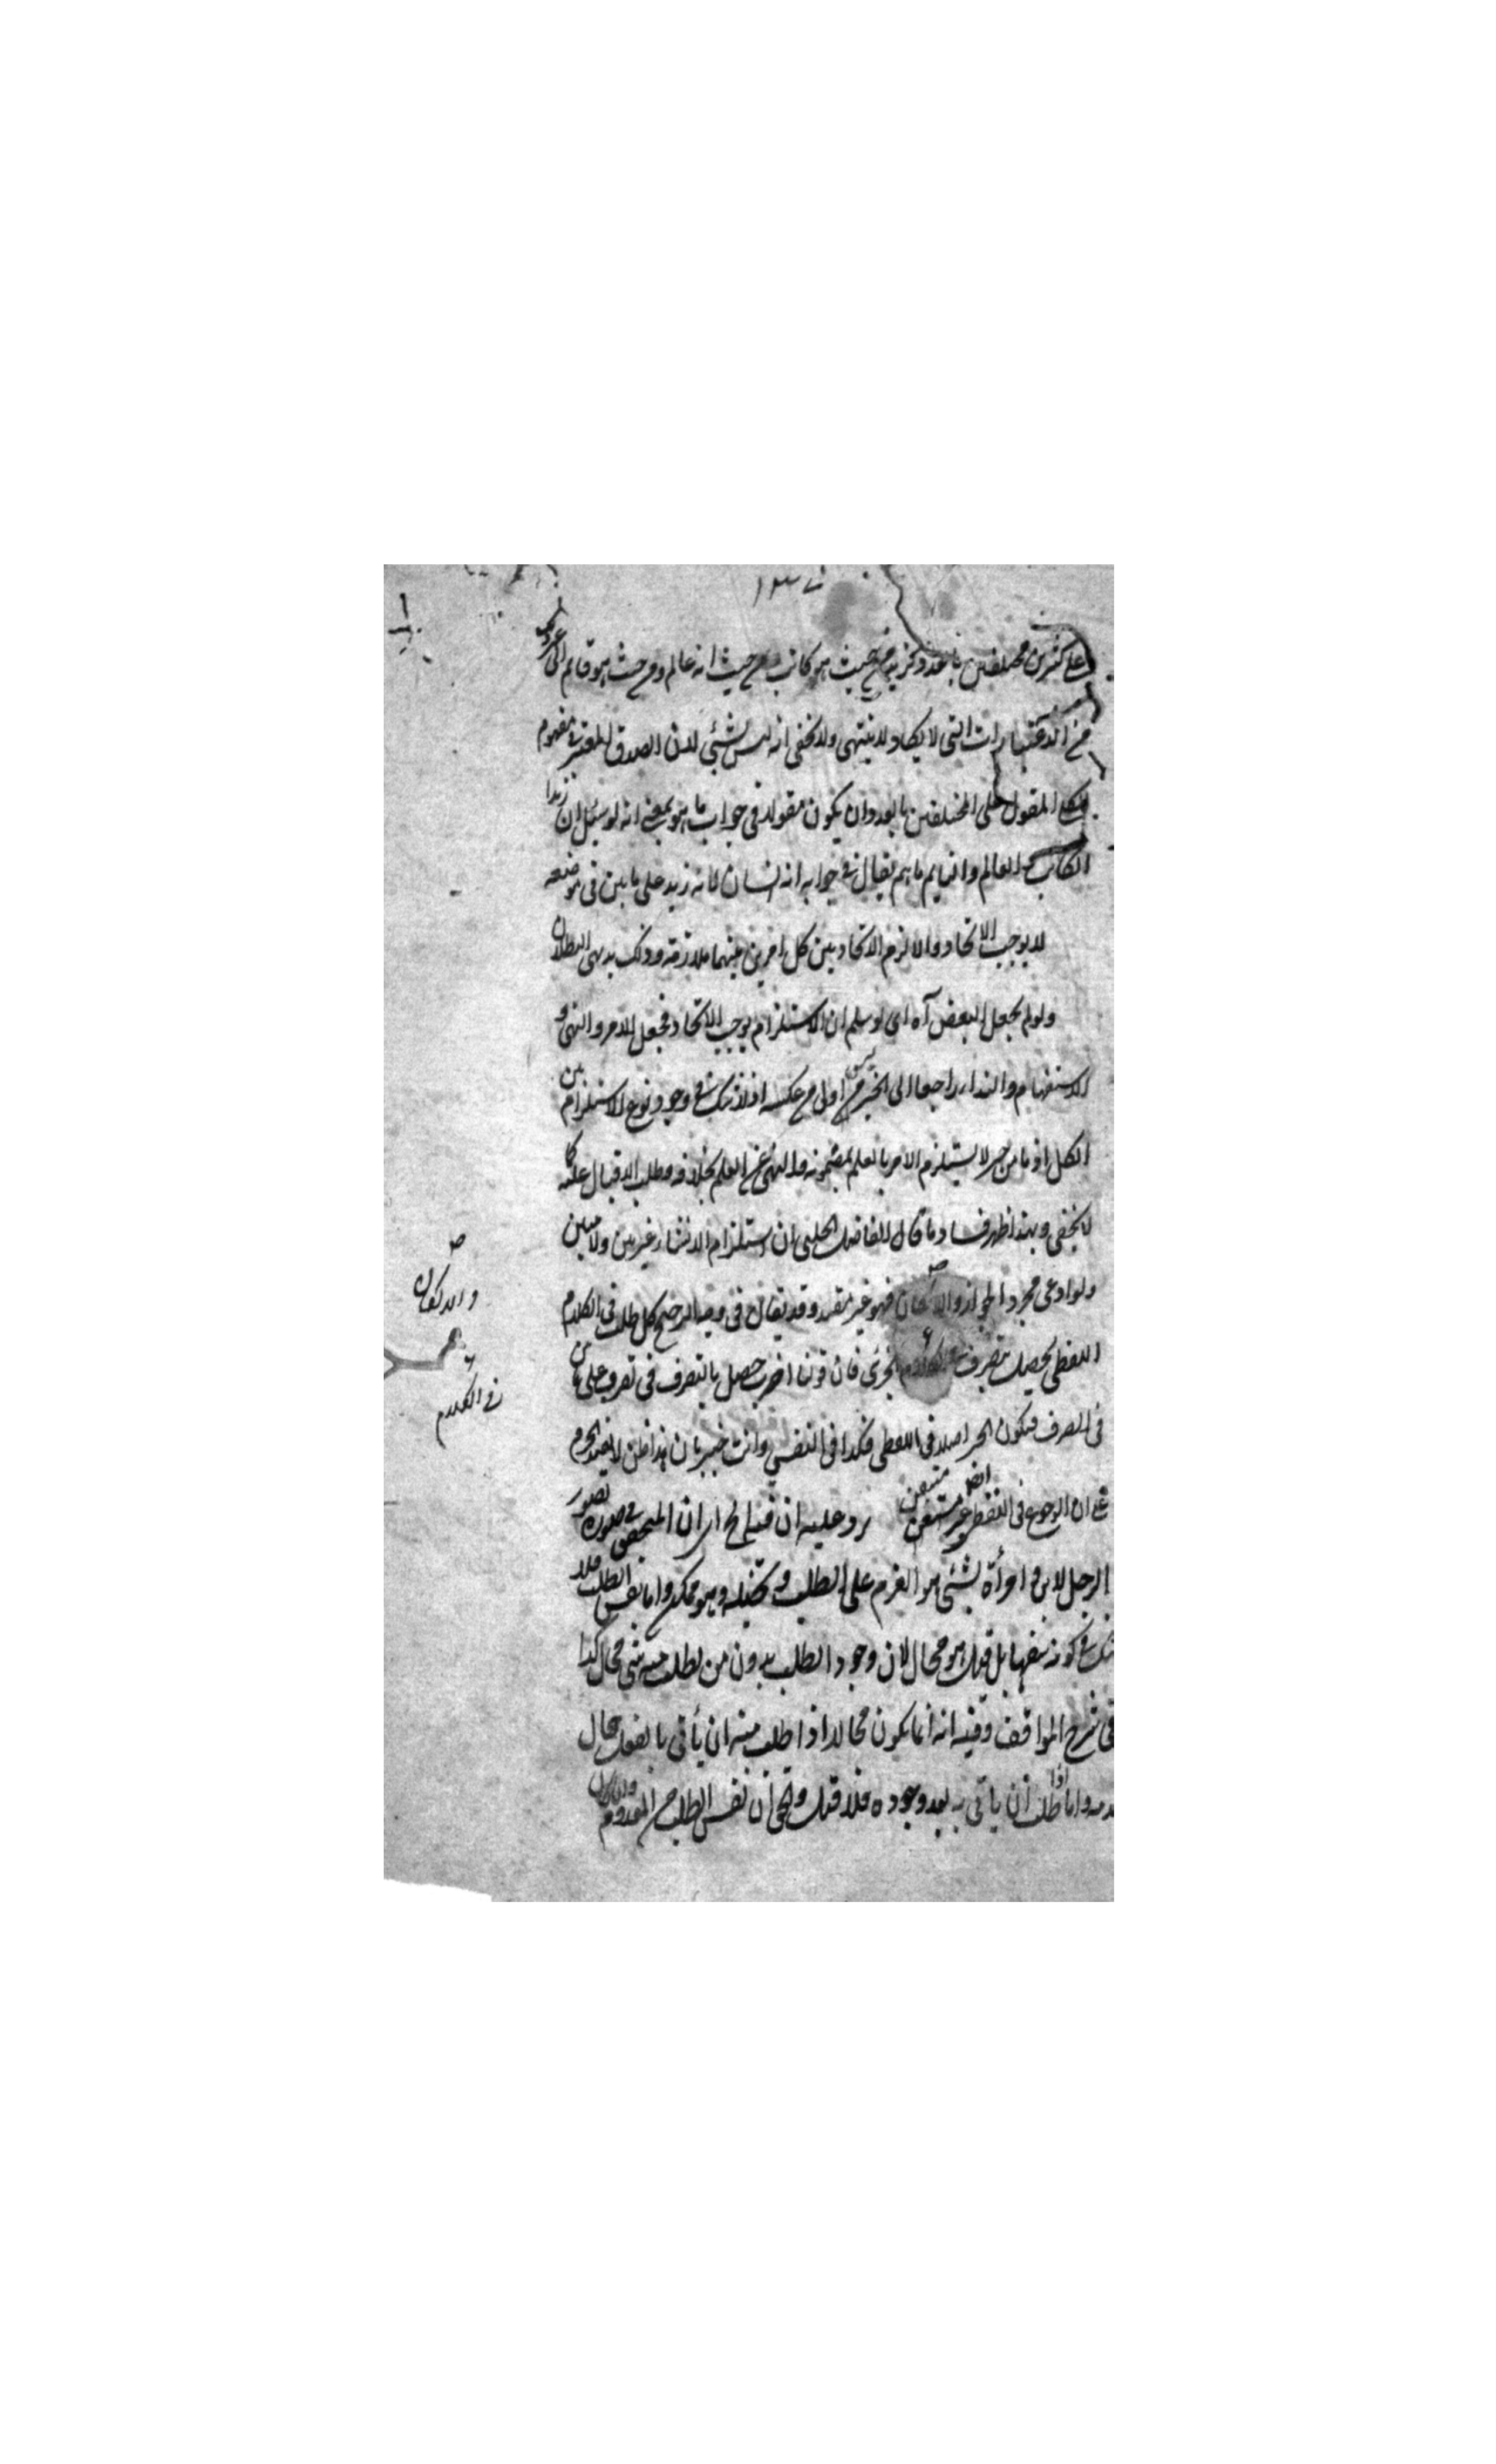 ١٣٧
على كثيرين مختلفين بالعدد كزيد من حيث هو كاتب من حيث انه عالم ومن حيث هو قائم الى غير ذلك
من الاعتبارات التي لا يكاد ولا ينتهى ولا يخفى انه ليس بشئي لان الصدق المعتبر في مفهوم
الكلي المقول على المختلفين بالعدد وان يكون مقولا في جواب ما هو بمعنى انه لو سئل ان زيدا
الكاتب والعالم والقايم ما هم يقال في جوابه انه انسان لا انه زيد على ما بين في موضعه
لا يوجب الاتحاد والا لزم الاتحاد بين كل امرين بينهما ملازمة وذلك بديهى البطلان
ولو لم يجعل البعض آه اى لو سلم ان الاستلزام يوجب الاتحاد فجعل الامر والنهى و
الاستفهام والنداء راجعا الى الخبر ليس اولى من عكسه اذ لا شك في وجود نوع الاستلزام بين
الكل اذ ما من خبر لا يستلزم الامر بالعلم بمضمونه والنهى عن العلم بخلافه وطلب الاقبال عليه كما
لا يخفى وبهذا ظهر فساد ما قال الفاضل الجلبى ان استلزام الانشاء غير بين ولا مبين
ولو ادعى مجرد الجواز والامكان فهو غير مفيد وقد يقال في وجه الترجيح كل طلب في الكلام
اللفظى يحصل بتصرف في الكلام الخبرى فان قولنا اضرب حصل بالتصرف في تضرب على ما بين
في الصرف فيكون الخبر اصلا في اللفظى فكذا في النفسى وانت خبير بان هذا ظن لا يفيد الجزم
على ان الرجوع في اللفظ ايضا غير متيقن
متيقن
يرد عليه ان قيل لخ اى ان المتحقق في صورة تصور
الرجل لابن و امرأة بشئى هو العزم على الطلب وتخيله وهو ممكن واما نفس الطلب فلا
شك في كونه سفها بل قيل هو محال لان وجود الطلب بدون من يطلب منه شئى محال كذا
في شرح المواقف وفيه انه انما يكون محالا اذا طلب منه ان يأتى بالفعل حال
عدمه واما اذا طلب ان يأتى به بعد وجوده فلا قيل والحق ان نفس الطلب من المعدوم وان كان
والامكان
في الكلام